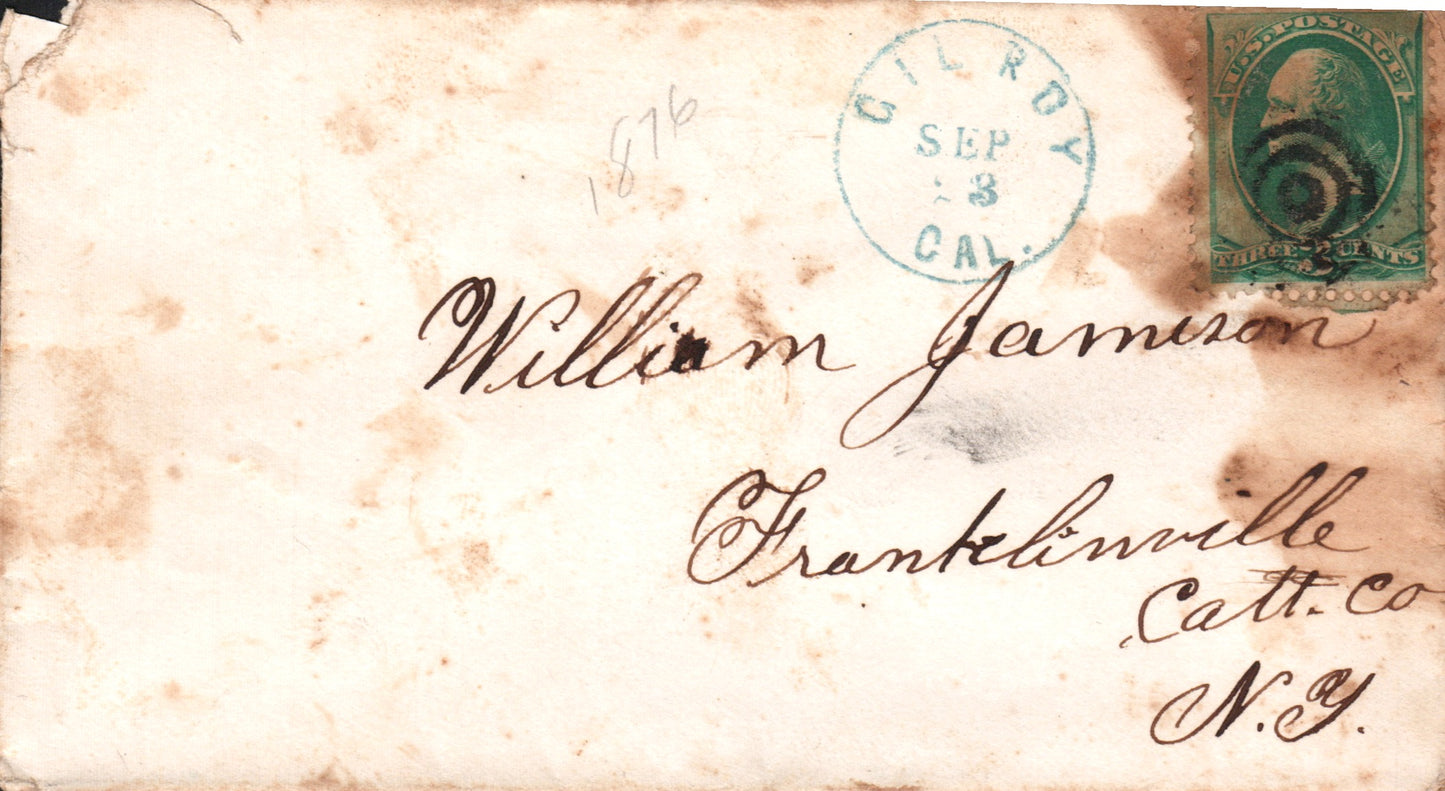 GILROY
SEP
3
CAL.
1876
U.S. POSTAGE
THREE 3 CENTS
William Jamison
Franklinville
Catt. Co
N.Y.